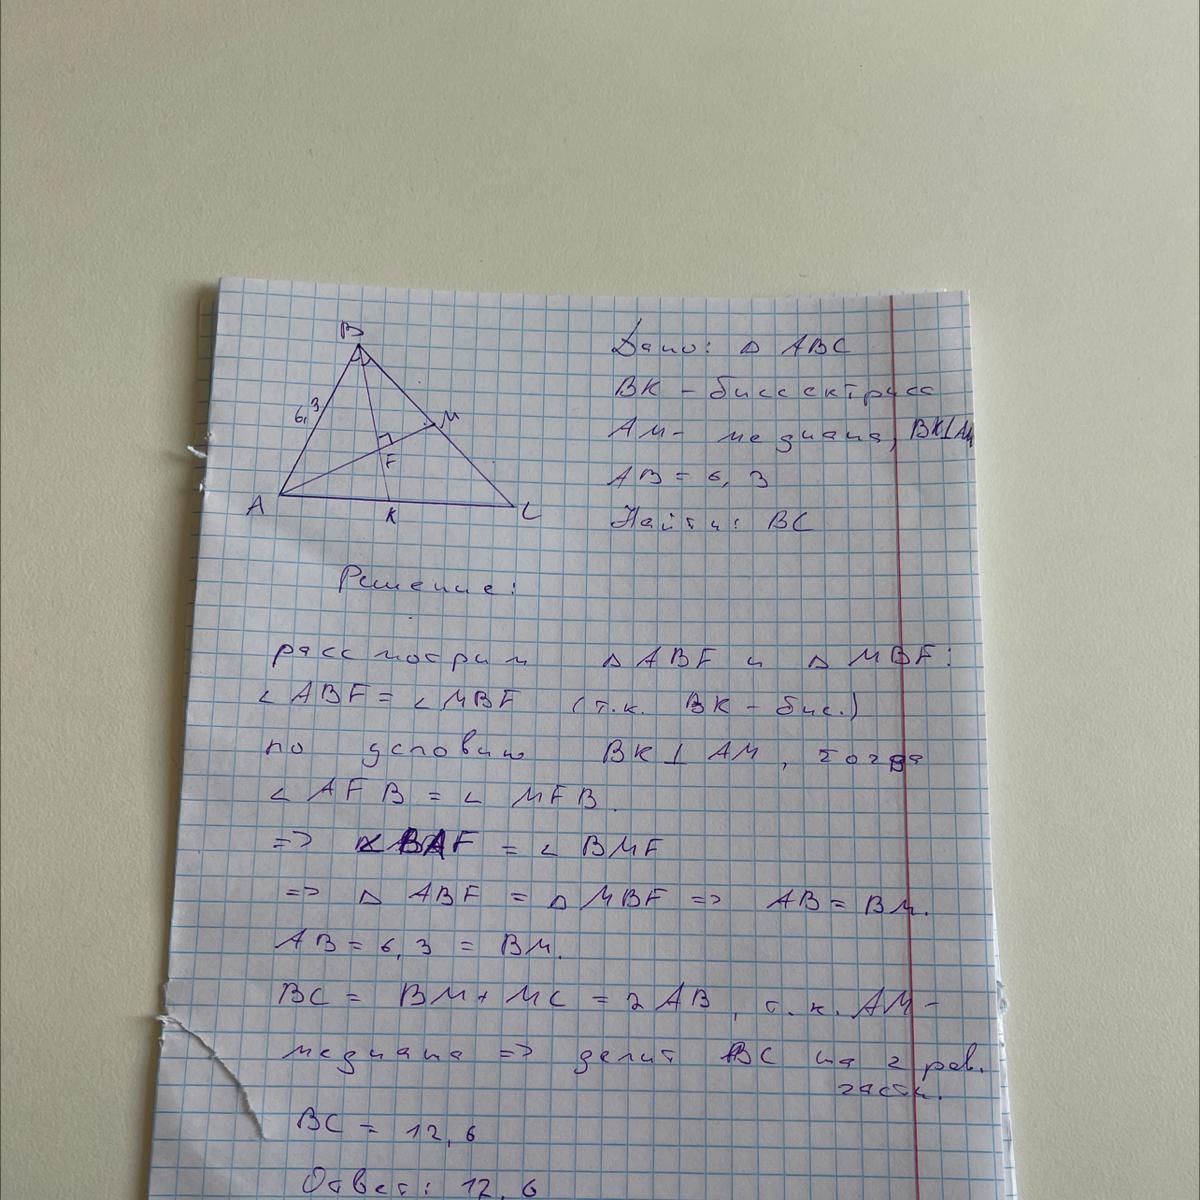 B
6,3
M
F
A
K
C
Дано: △ ABC
BK - биссектриса
AM - медиана, BK⊥AM
AB = 6,3
Найти: BC
Решение:
рассмотрим △ ABF и △ MBF:
∠ ABF = ∠ MBF (т.к. BK - бис.)
по условию BK ⊥ AM, тогда
∠ AFB = ∠ MFB.
=> ∠ BAF = ∠ BMF
=> △ ABF = △ MBF => AB = BM.
AB = 6,3 = BM.
BC = BM + MC = 2 AB, т.к. AM -
медиана => делит BC на 2 рав.
части.
BC = 12,6
Ответ: 12,6